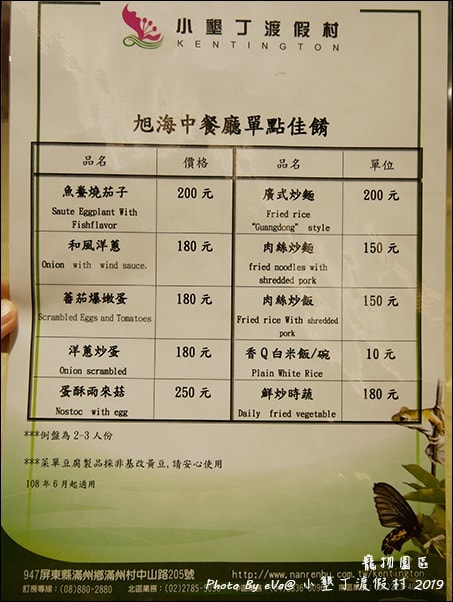 小墾丁渡假村
KENTINGTON
旭海中餐廳單點佳餚
品名 價格 品名 單位
魚鯗燒茄子 200 元 廣式炒麵 200 元
Saute Eggplant With Fried rice
Fishflavor “Guangdong” style
和風洋蔥 180 元 肉絲炒麵 150 元
Onion with wind sauce. fried noodles with
shredded pork
蕃茄爆嫩蛋 180 元 肉絲炒飯 150 元
Scrambled Eggs and Tomatoes Fried rice With shredded
pork
洋蔥炒蛋 180 元 香Q白米飯/碗 10 元
Onion scrambled Plain White Rice
蛋酥雨來菇 250 元 鮮炒時蔬 180 元
Nostoc with egg Daily fried vegetable
***例盤為 2-3 人份
***菜單豆腐製品採非基改黃豆,請安心使用
108 年 6 月起適用
寵物園區
947屏東縣滿州鄉滿州村中山路205號 http://www.nanrenhu.com.tw/kentington
訂房專線：(08)880-2880 北區業務：(02)2785-
Photo By eVa@ 小墾丁渡假村.2019